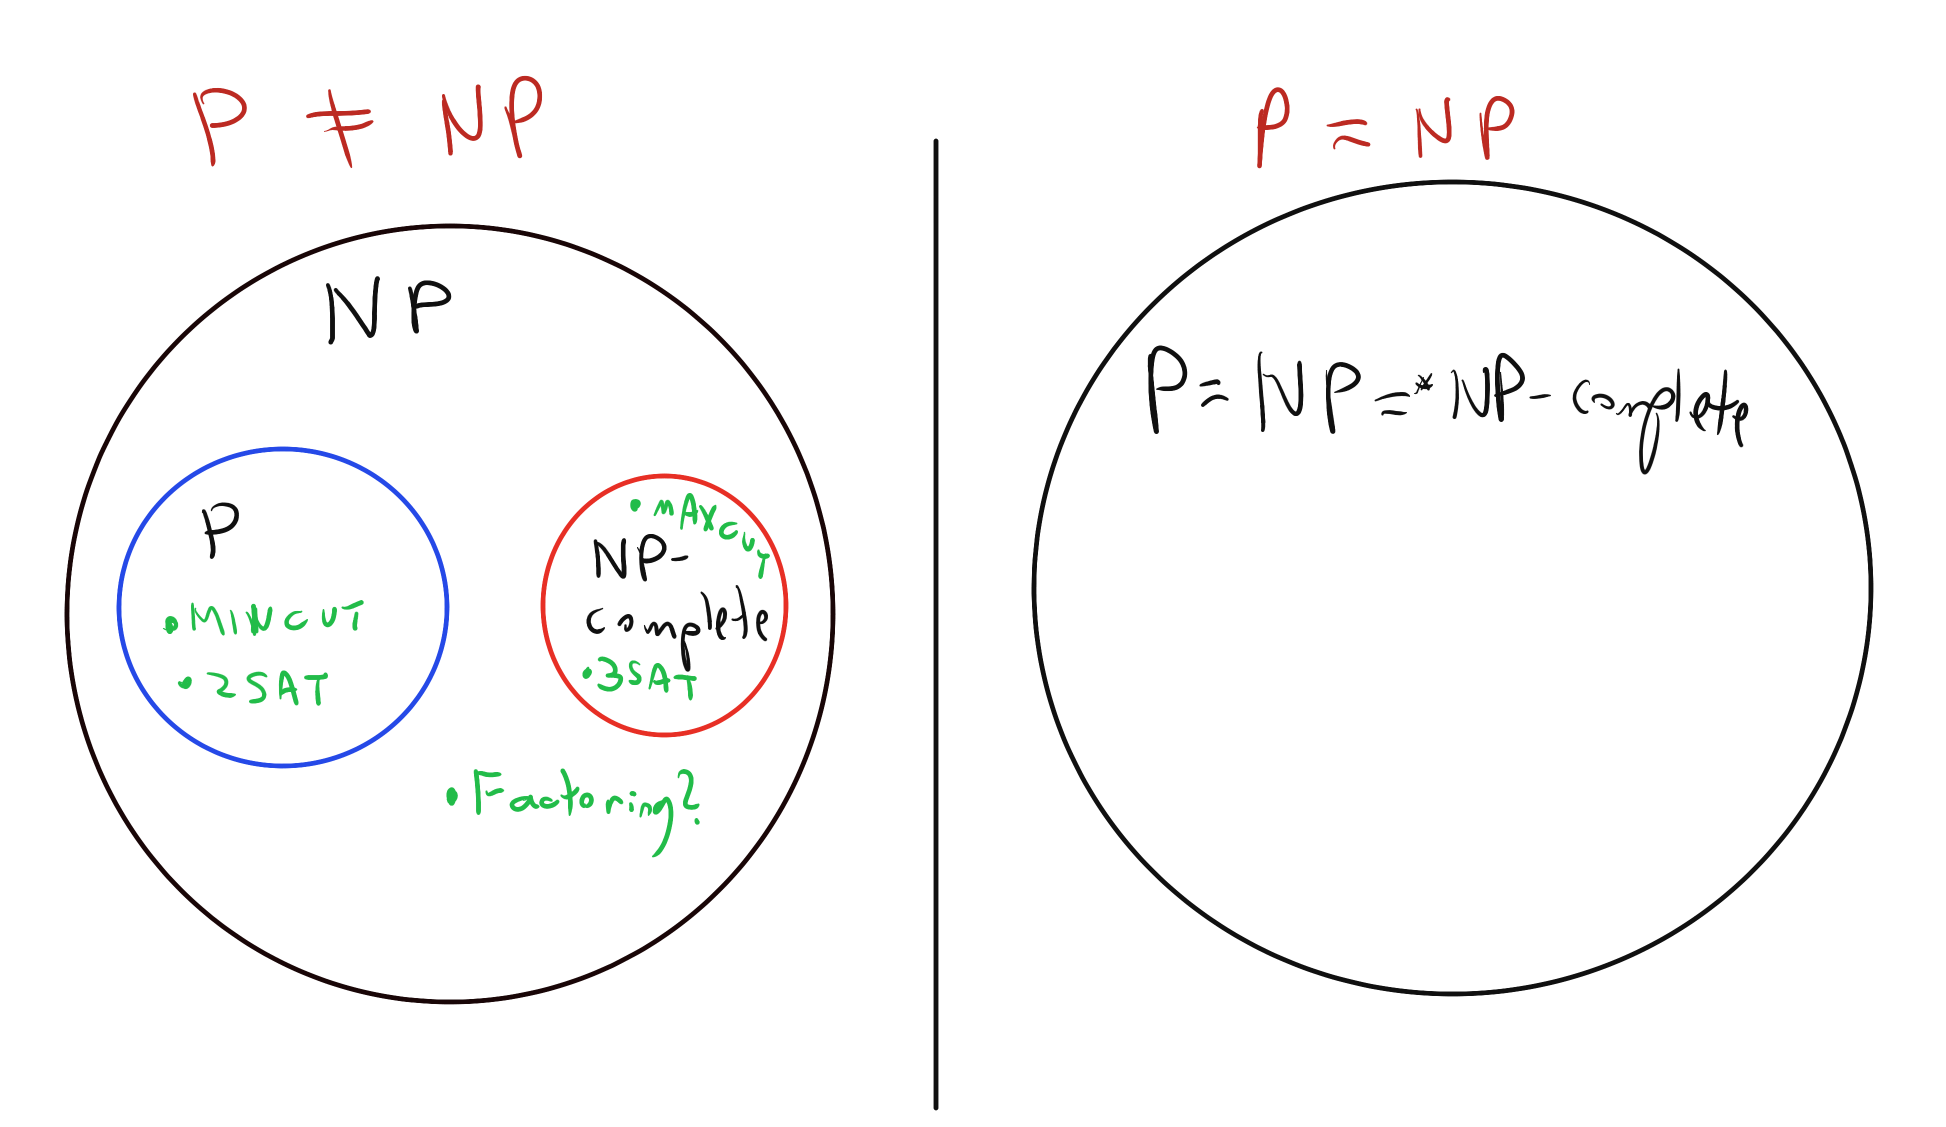 P ≠ NP
NP
P
• MINCUT
• 2SAT
• MAXCUT
NP-
complete
• 3SAT
• Factoring?
P = NP
P = NP =* NP-complete